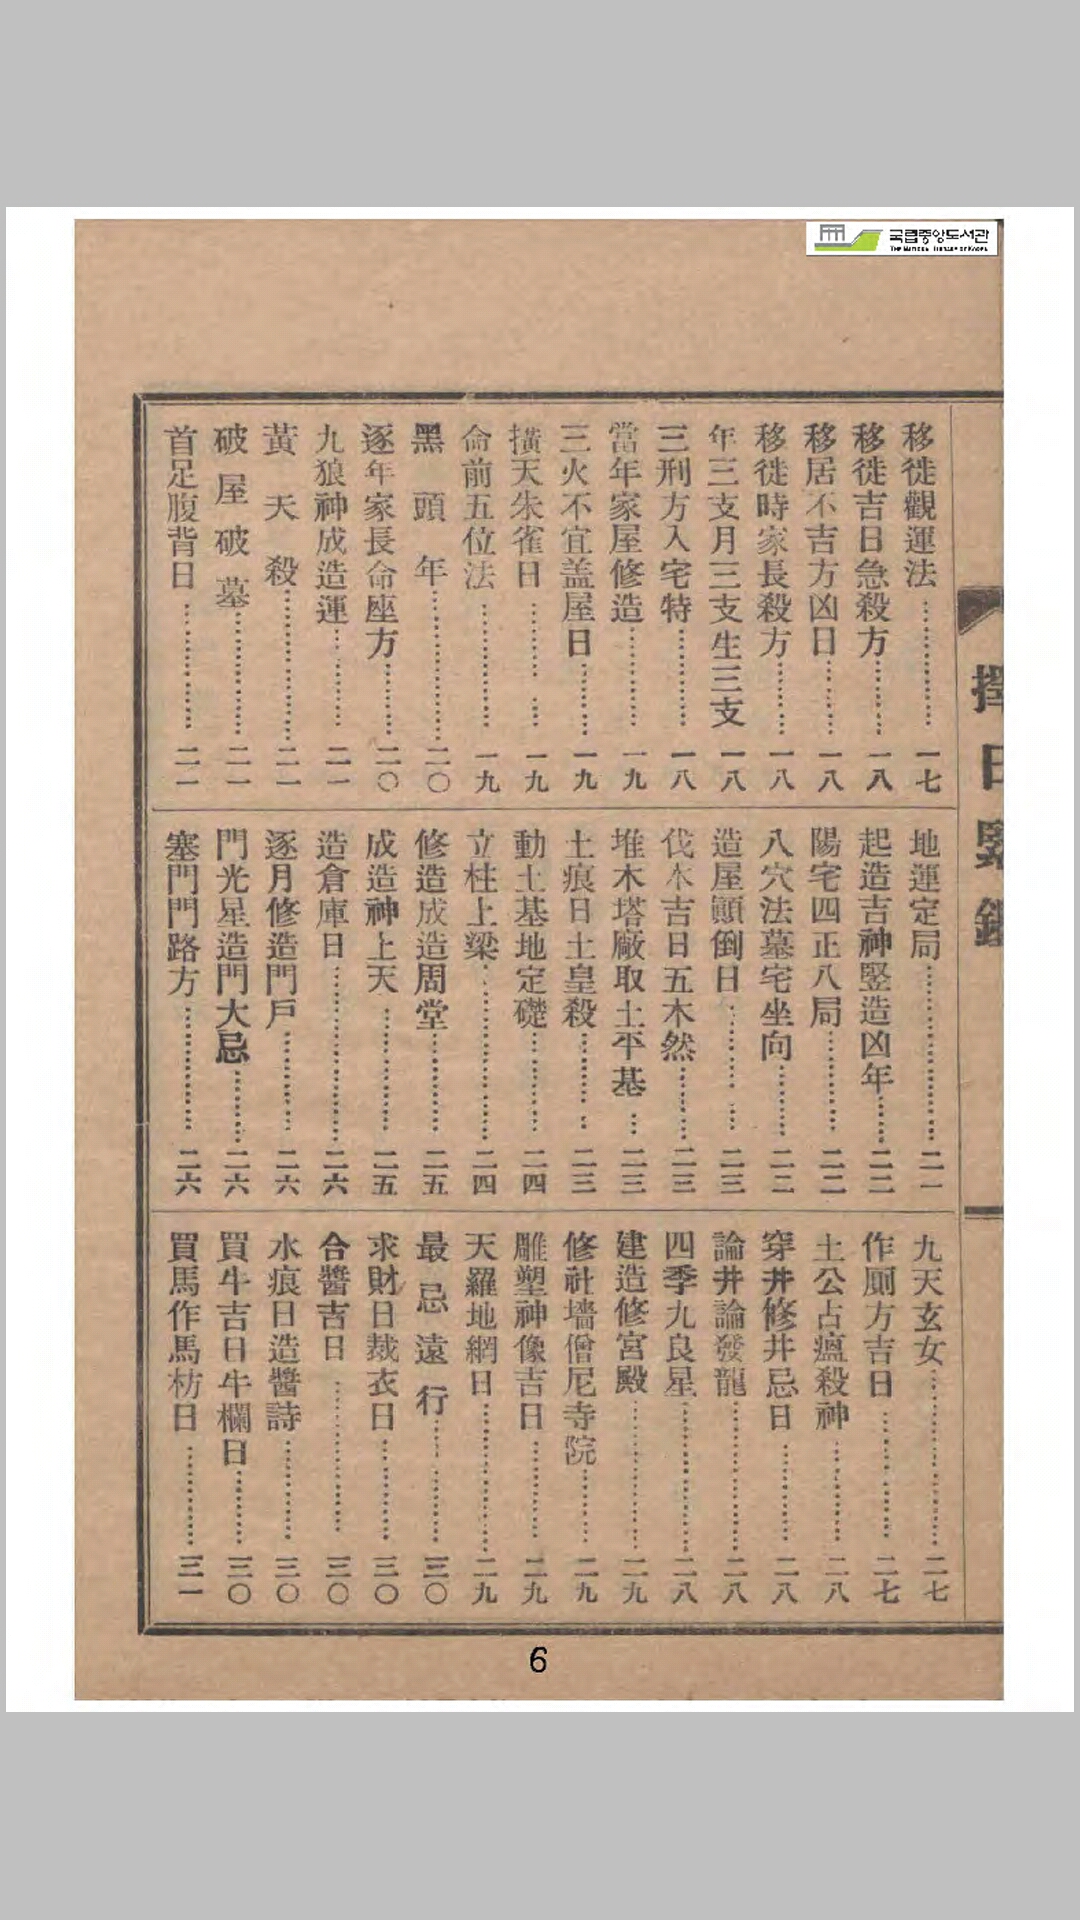 국립중앙도서관
THE NATIONAL LIBRARY OF KOREA
擇日
移徙觀運法…………一七
移徙吉日急殺方………一八
移居不吉方凶日………一八
移徙時家長殺方………一八
年三支月三支生三支 一八
三刑方入宅特…………一八
當年家屋修造…………一九
三火不宜盖屋日………一九
橫天朱雀日…………一九
命前五位法…………一九
黑頭年…………二〇
逐年家長命座方………二〇
九狼神成造運…………二一
黃天殺…………二一
破屋破墓…………二一
首足腹背日…………二一
地運定局…………二一
起造吉神竪造凶年……二二
陽宅四正八局…………二二
八穴法墓宅坐向………二二
造屋顚倒日…………二三
伐木吉日五木然………二三
堆木塔廠取土平基…二三
土痕日土皇殺…………二三
動土基地定礎…………二四
立柱上梁…………二四
修造成造周堂…………二五
成造神上天…………二五
造倉庫日…………二六
逐月修造門戶…………二六
門光星造門大忌………二六
塞門門路方…………二六
九天玄女…………二七
作厠方吉日…………二七
土公占瘟殺神…………二八
穿井修井忌日…………二八
論井論發龍…………二八
四季九良星…………二八
建造修宮殿…………二九
修社墻僧尼寺院………二九
雕塑神像吉日…………二九
天羅地網日…………二九
最忌遠行…………三〇
求財日裁衣日…………三〇
合醬吉日…………三〇
水痕日造醬詩…………三〇
買牛吉日牛欄日………三〇
買馬作馬枋日…………三一
6